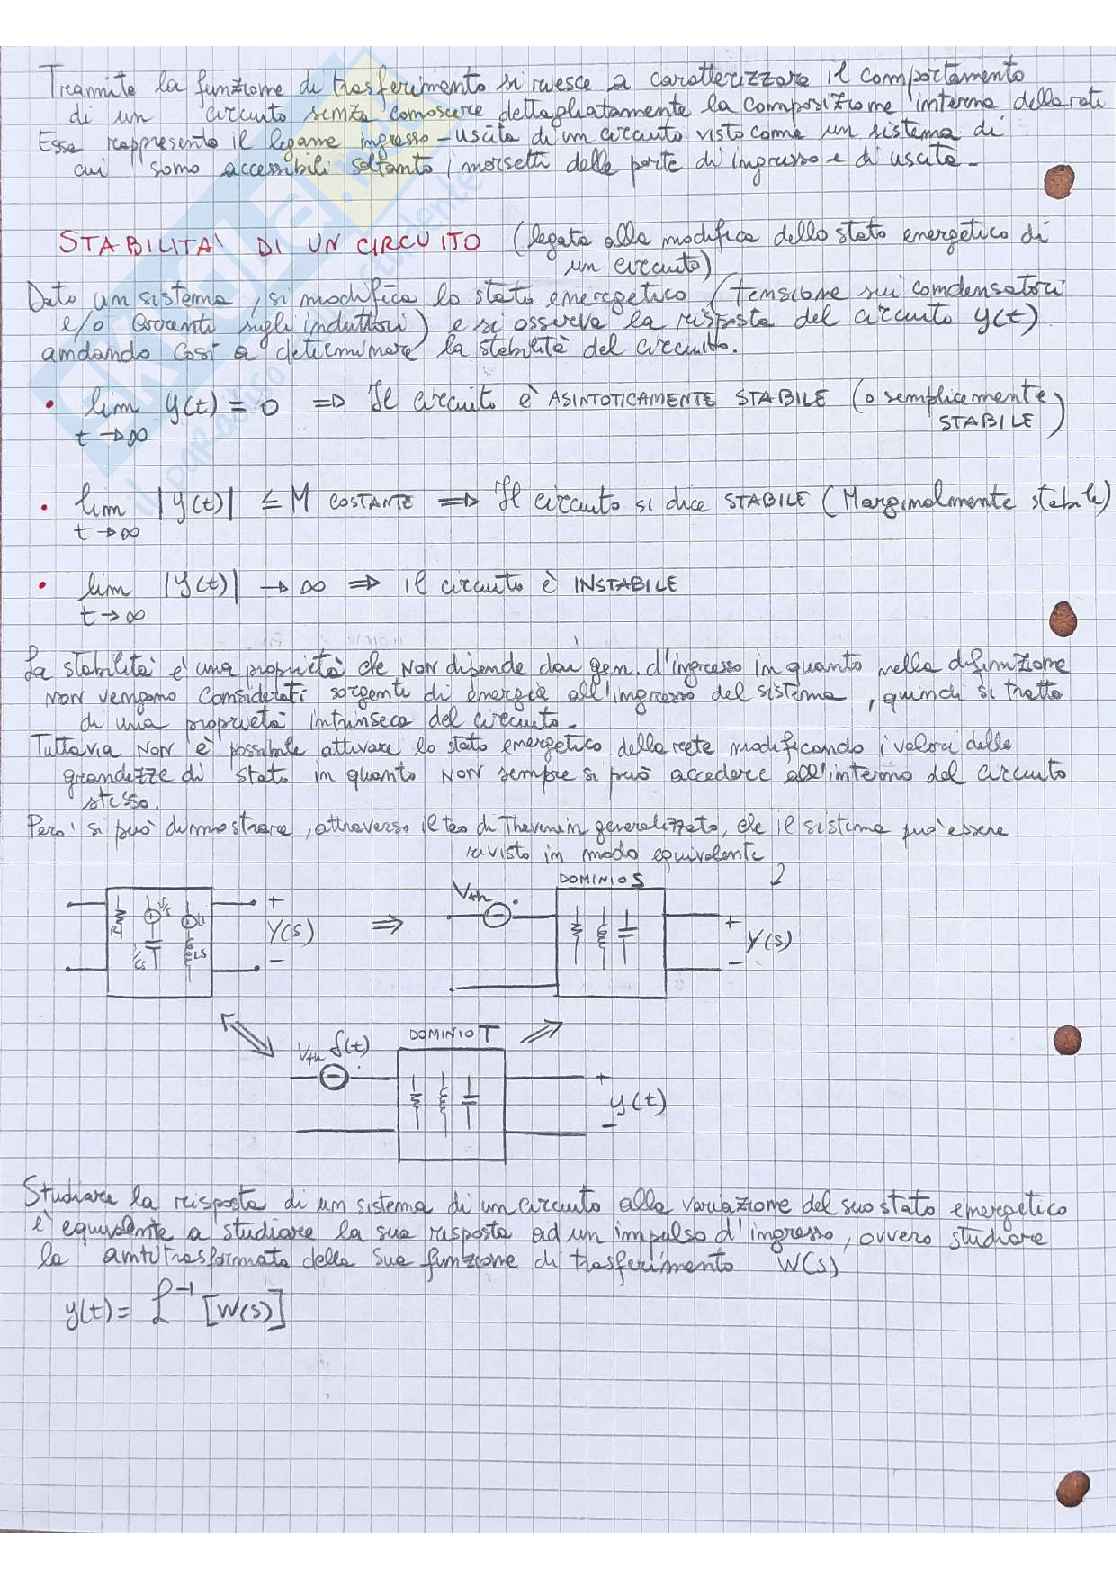 Tramite la funzione di trasferimento si riesce a caratterizzare il comportamento
di un circuito senza conoscere dettagliatamente la composizione interna della rete
Essa rappresenta il legame ingresso-uscita di un circuito visto come un sistema di
cui sono accessibili soltanto i morsetti delle porte di ingresso e di uscita.
STABILITA' DI UN CIRCUITO (legata alla modifica dello stato energetico di
un circuito)
Dato un sistema, si modifica lo stato energetico (tensione sui condensatori
e/o correnti sugli induttori) e si osserva la risposta del circuito y(t)
andando così a determinare la stabilità del circuito.
• lim y(t) = 0 => Il circuito è ASINTOTICAMENTE STABILE (o semplicemente
t→∞ STABILE)
• lim |y(t)| ≤ M COSTANTE => Il circuito si dice STABILE (Marginalmente stabile)
t→∞
• lim |y(t)| → ∞ => il circuito è INSTABILE
t→∞
La stabilità è una proprietà che NON dipende dai gen. d'ingresso in quanto nella definizione
NON vengono considerati sorgenti di energia all'ingresso del sistema, quindi si tratta
di una proprietà intrinseca del circuito.
Tuttavia NON è possibile attivare lo stato energetico della rete modificando i valori delle
grandezze di stato in quanto NON sempre si può accedere all'interno del circuito
stesso.
Però si può dimostrare, attraverso il teo di Thevenin generalizzato, che il sistema può essere
rivisto in modo equivalente
DOMINIO S
Vth
R
Ls
+
Y(s)
-
=>
+
Y(s)
-
DOMINIO T
Vth f(t)
+
y(t)
-
Studiare la risposta di un sistema di un circuito alla variazione del suo stato energetico
è equivalente a studiare la sua risposta ad un impulso d'ingresso, ovvero studiare
la antitrasformata della sua funzione di trasferimento W(s)
y(t) = ℒ⁻¹ [W(s)]